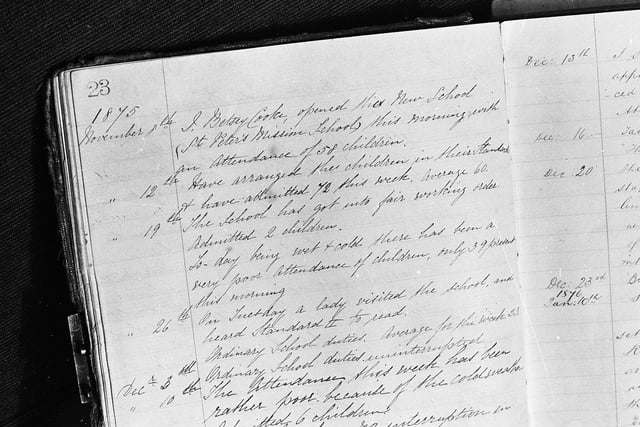 23
1875
November 8th I, Betsey Cooke, opened this New School
(St Peter's Mission School) this morning with
an attendance of 58 children.
" 12th Have arranged the children in their Standards
& have admitted 72 this week. Average 60
" 19th The School has got into fair working order
Admitted 2 children.
To-day being wet & cold there has been a
very poor attendance of children, only 39 present
this morning
" 26th On Tuesday a lady visited the school, and
heard Standard to read.
Ordinary School duties. Average for the week 53
Decr 3rd Ordinary School duties uninterrupted
" 10th The Attendance this week has been
rather poor because of the cold weather
Admitted 6 children
interruption in
Dec. 13th
Dec. 16
Dec 20
Dec. 23rd
1876
Jan. 10th